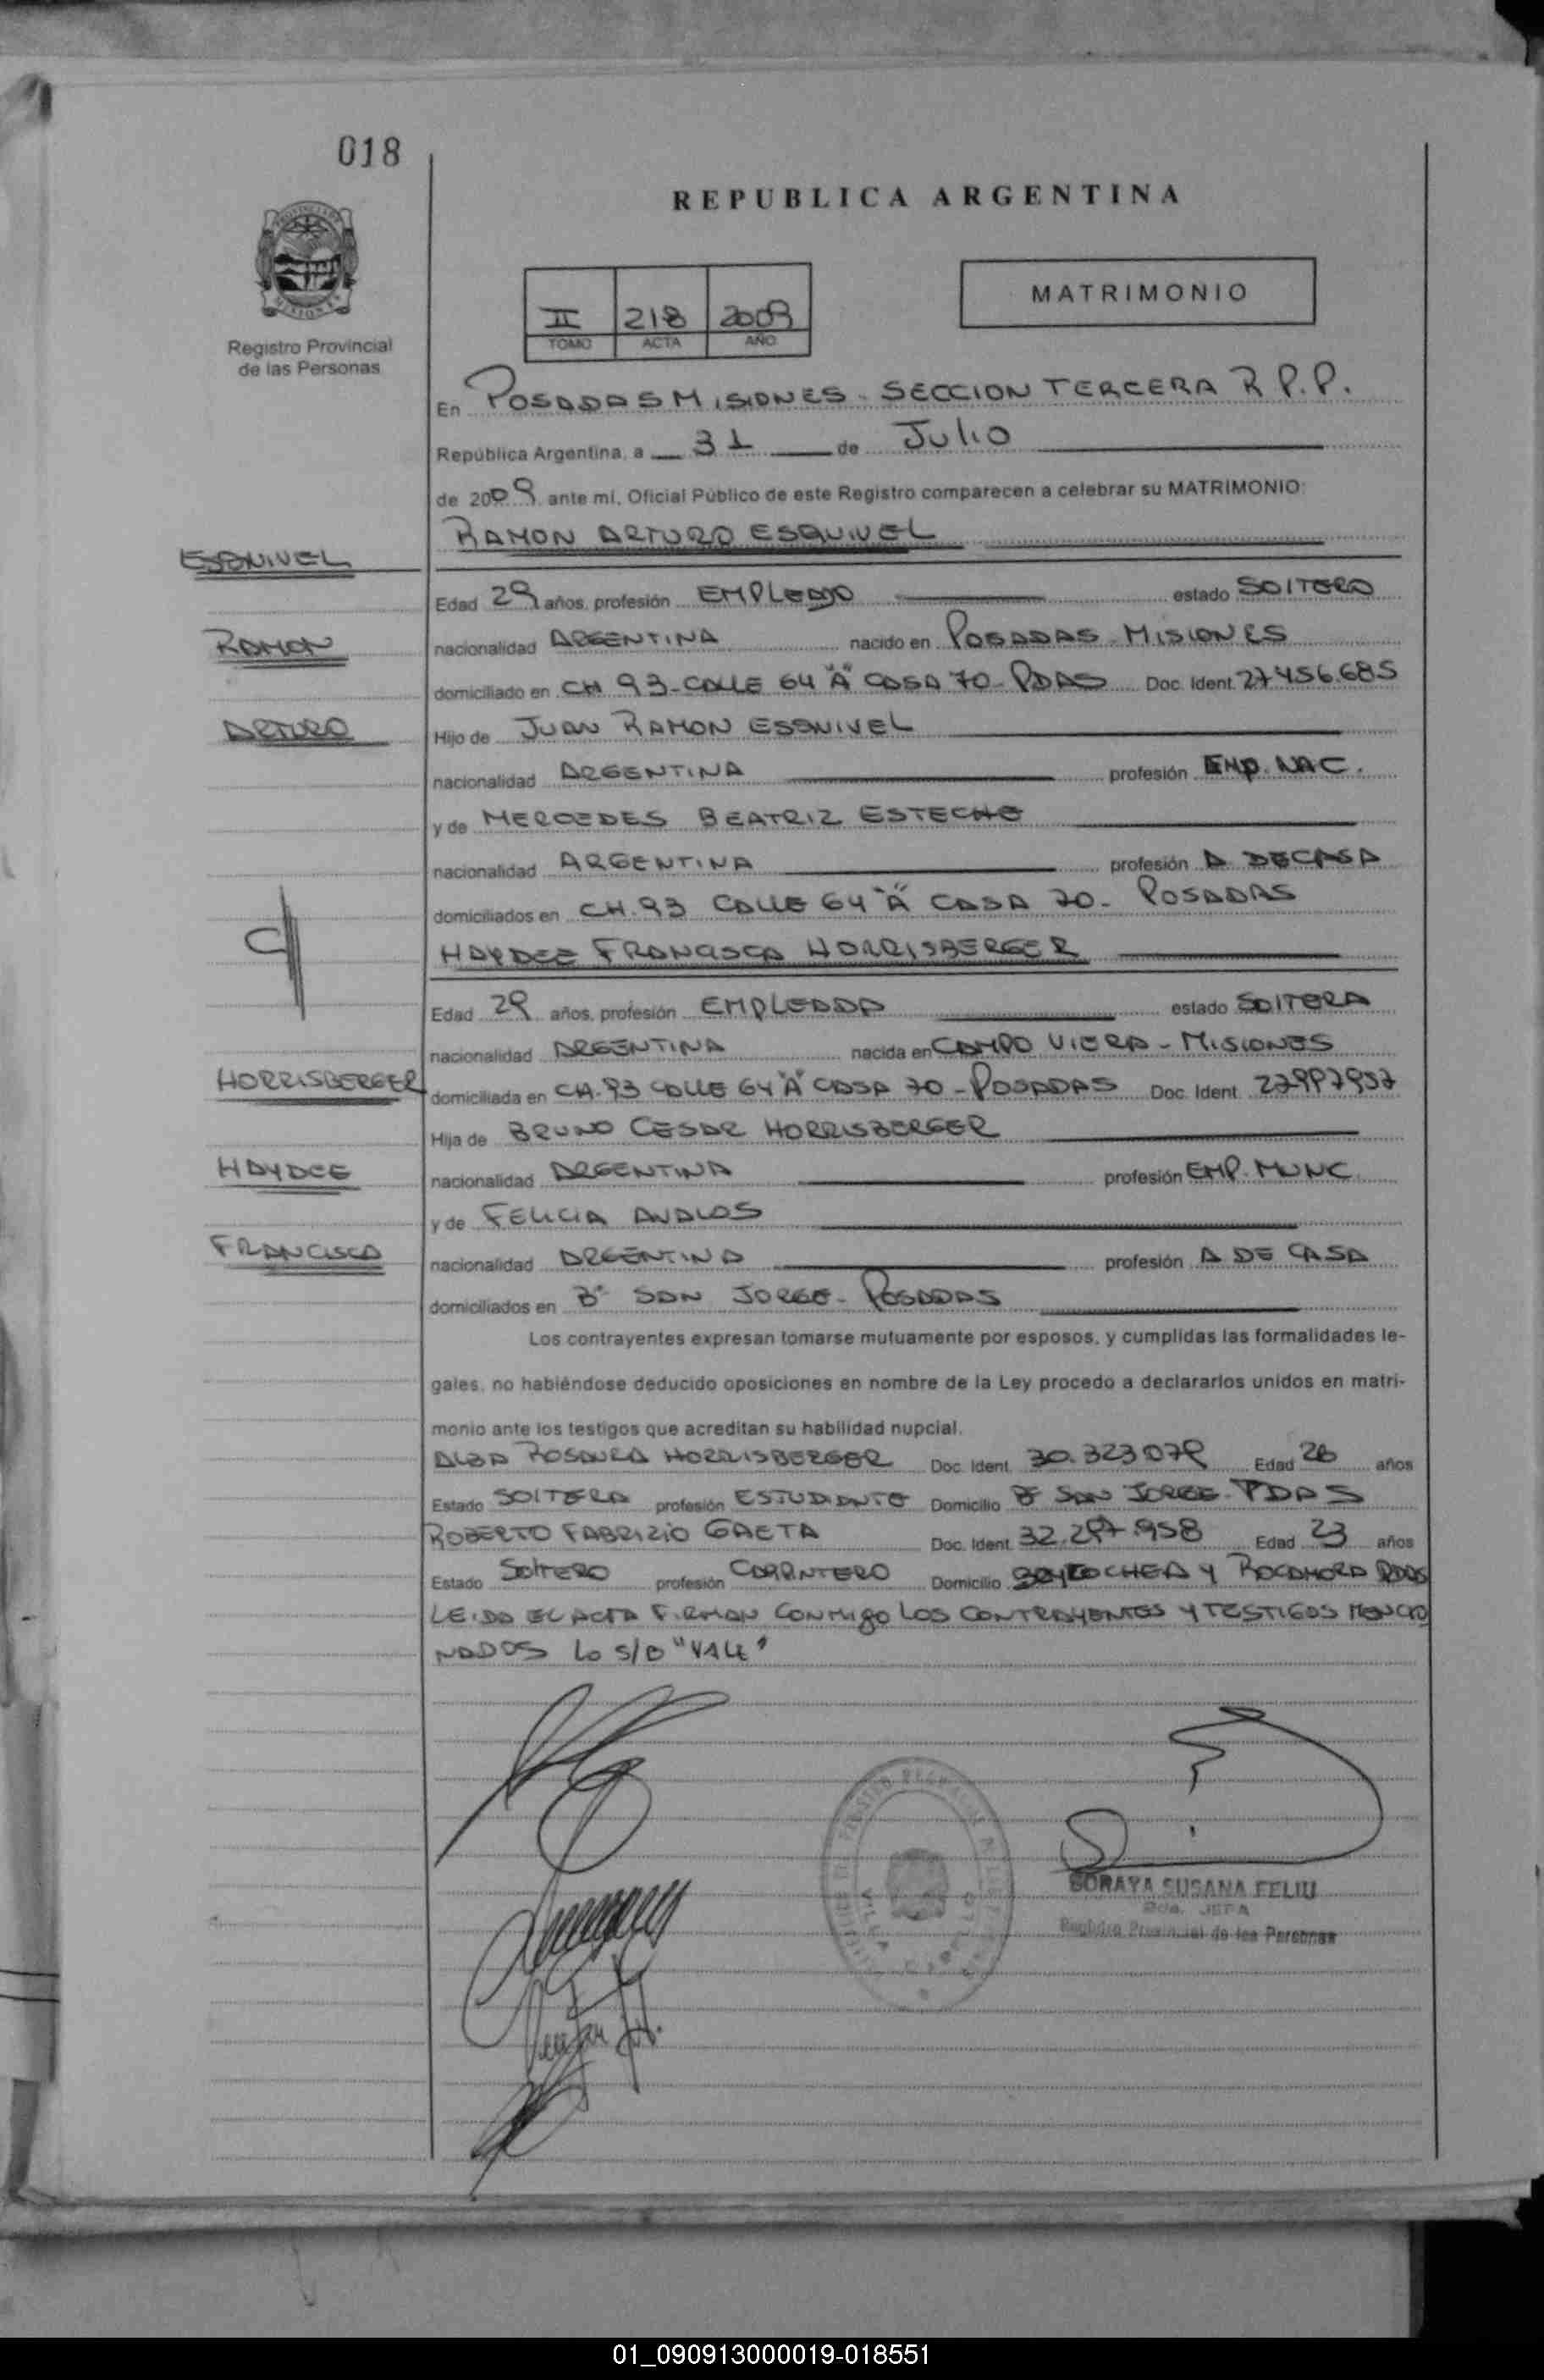 018
REPUBLICA ARGENTINA
MATRIMONIO
II 218 2009
TOMO ACTA AÑO
Registro Provincial
de las Personas
En POSADAS MISIONES - SECCION TERCERA R P.P.
República Argentina, a 31 de Julio
de 2009 ante mí, Oficial Público de este Registro comparecen a celebrar su MATRIMONIO:
RAMON ARTURO ESQUIVEL
ESQUIVEL
Edad 29 años, profesión EMPLEADO estado SOLTERO
RAMON
nacionalidad ARGENTINA nacido en POSADAS - MISIONES
domiciliado en CH 93 - CALLE 64 "A" CASA 70 - PDAS Doc. Ident. 27456.685
ARTURO
Hijo de JUAN RAMON ESQUIVEL
nacionalidad ARGENTINA profesión EMP. NAC.
y de MERCEDES BEATRIZ ESTECHE
nacionalidad ARGENTINA profesión A DE CASA
domiciliados en CH. 93 CALLE 64 "A" CASA 70 - POSADAS
HAYDEE FRANCISCA HORRISBERGER
Edad 29 años, profesión EMPLEADA estado SOLTERA
nacionalidad ARGENTINA nacida en CAMPO VIERA - MISIONES
HORRISBERGER
domiciliada en CH. 93 CALLE 64 "A" CASA 70 - POSADAS Doc. Ident.
Hija de BRUNO CESAR HORRISBERGER
HAYDEE
nacionalidad ARGENTINA profesión EMP. MUNC.
y de FELICIA AVALOS
FRANCISCA
nacionalidad ARGENTINA profesión A DE CASA
domiciliados en B° SAN JORGE - POSADAS
Los contrayentes expresan tomarse mutuamente por esposos, y cumplidas las formalidades le-
gales, no habiéndose deducido oposiciones en nombre de la Ley procedo a declararlos unidos en matri-
monio ante los testigos que acreditan su habilidad nupcial.
ALBA ROSAURA HORRISBERGER Doc. Ident. 30.323079 Edad 26 años
Estado SOLTERA profesión ESTUDIANTE Domicilio B° SAN JORGE - PDAS
ROBERTO FABRIZIO GAETA Doc. Ident. 32.297.958 Edad 23 años
Estado SOLTERO profesión CARPINTERO Domicilio Y ROCAMORA PDAS
LEIDA EL ACTA FIRMAN CONMIGO LOS CONTRAYENTES Y TESTIGOS MENCIO
NADOS LO S/B "VALE"
SORAYA SUSANA FELIU
JEFA
Registro Provincial de las Personas
01_090913000019-018551